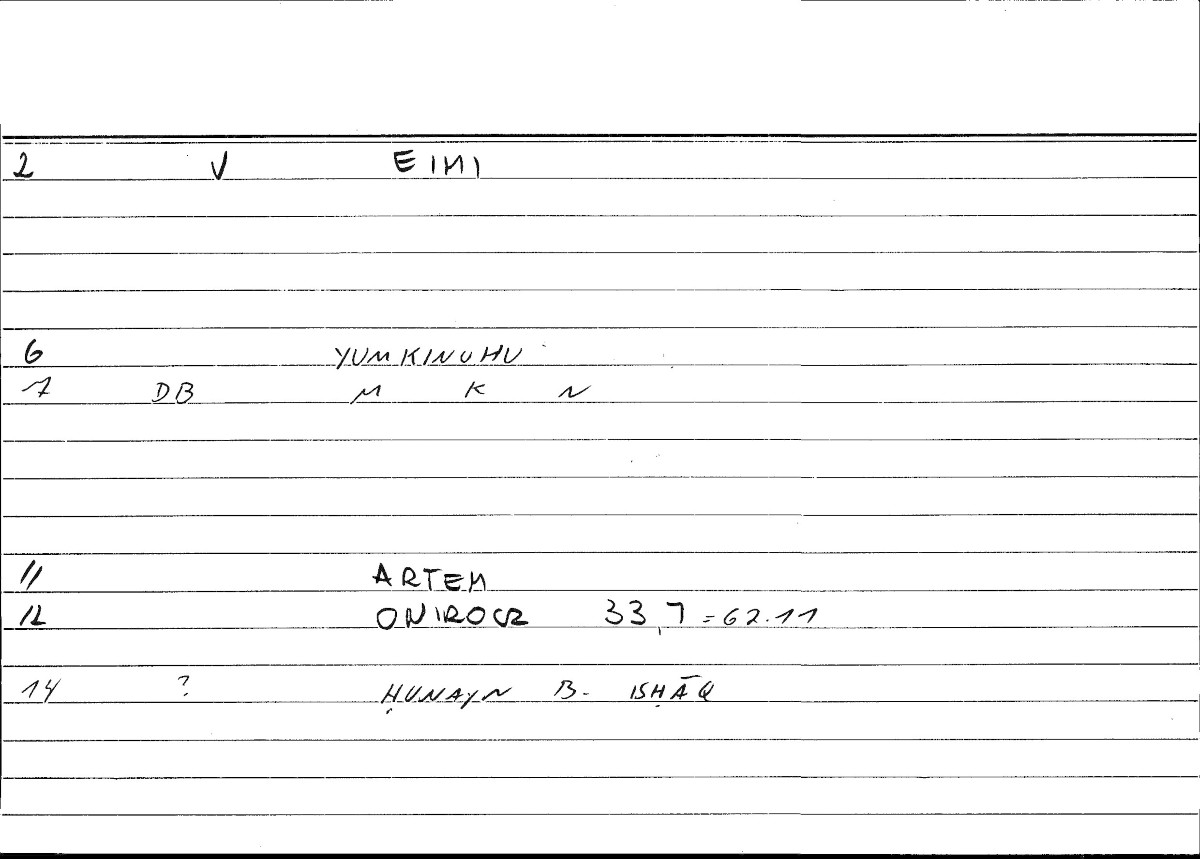 2 V EIMI
6 YUMKINUHU
7 DB M K N
11 ARTEM
12 ONIROCR 33,7 = 62.11
14 ? ḤUNAYN B. ISḤĀQ